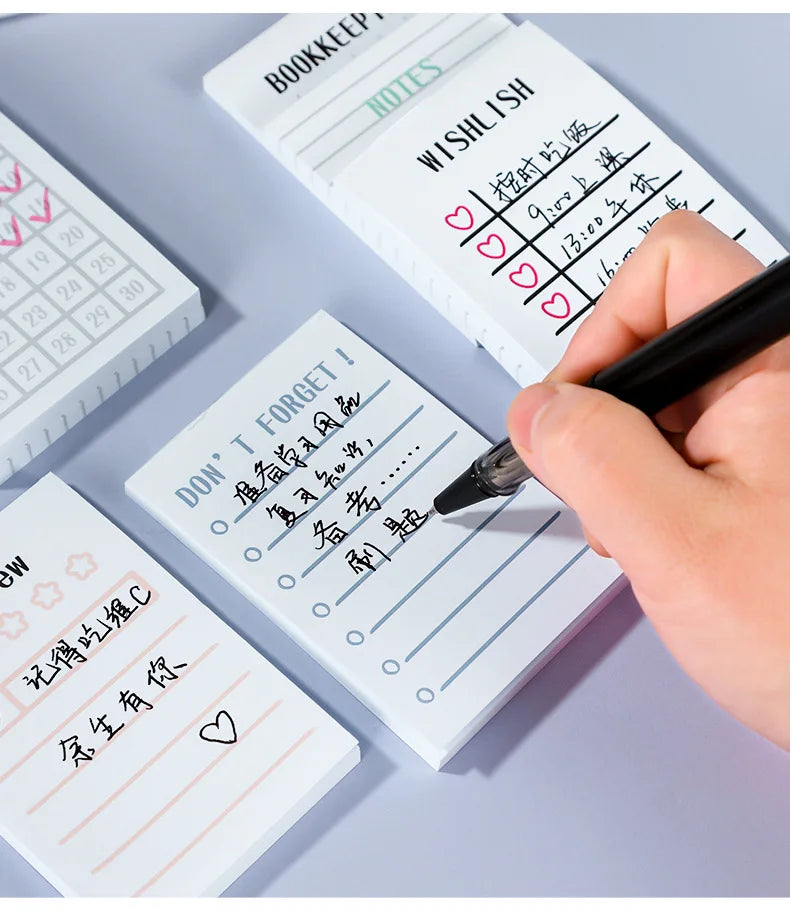 BOOKKEEPI
NOTES
WISHLISH
按时吃饭
9:00上课
13:00午休
16:00
18 19 20
22 23 24 25
27 28 29 30
DON'T FORGET!
准备学习用品
复习知识,
备考……
刷题
ew
记得吃维C
余生有你